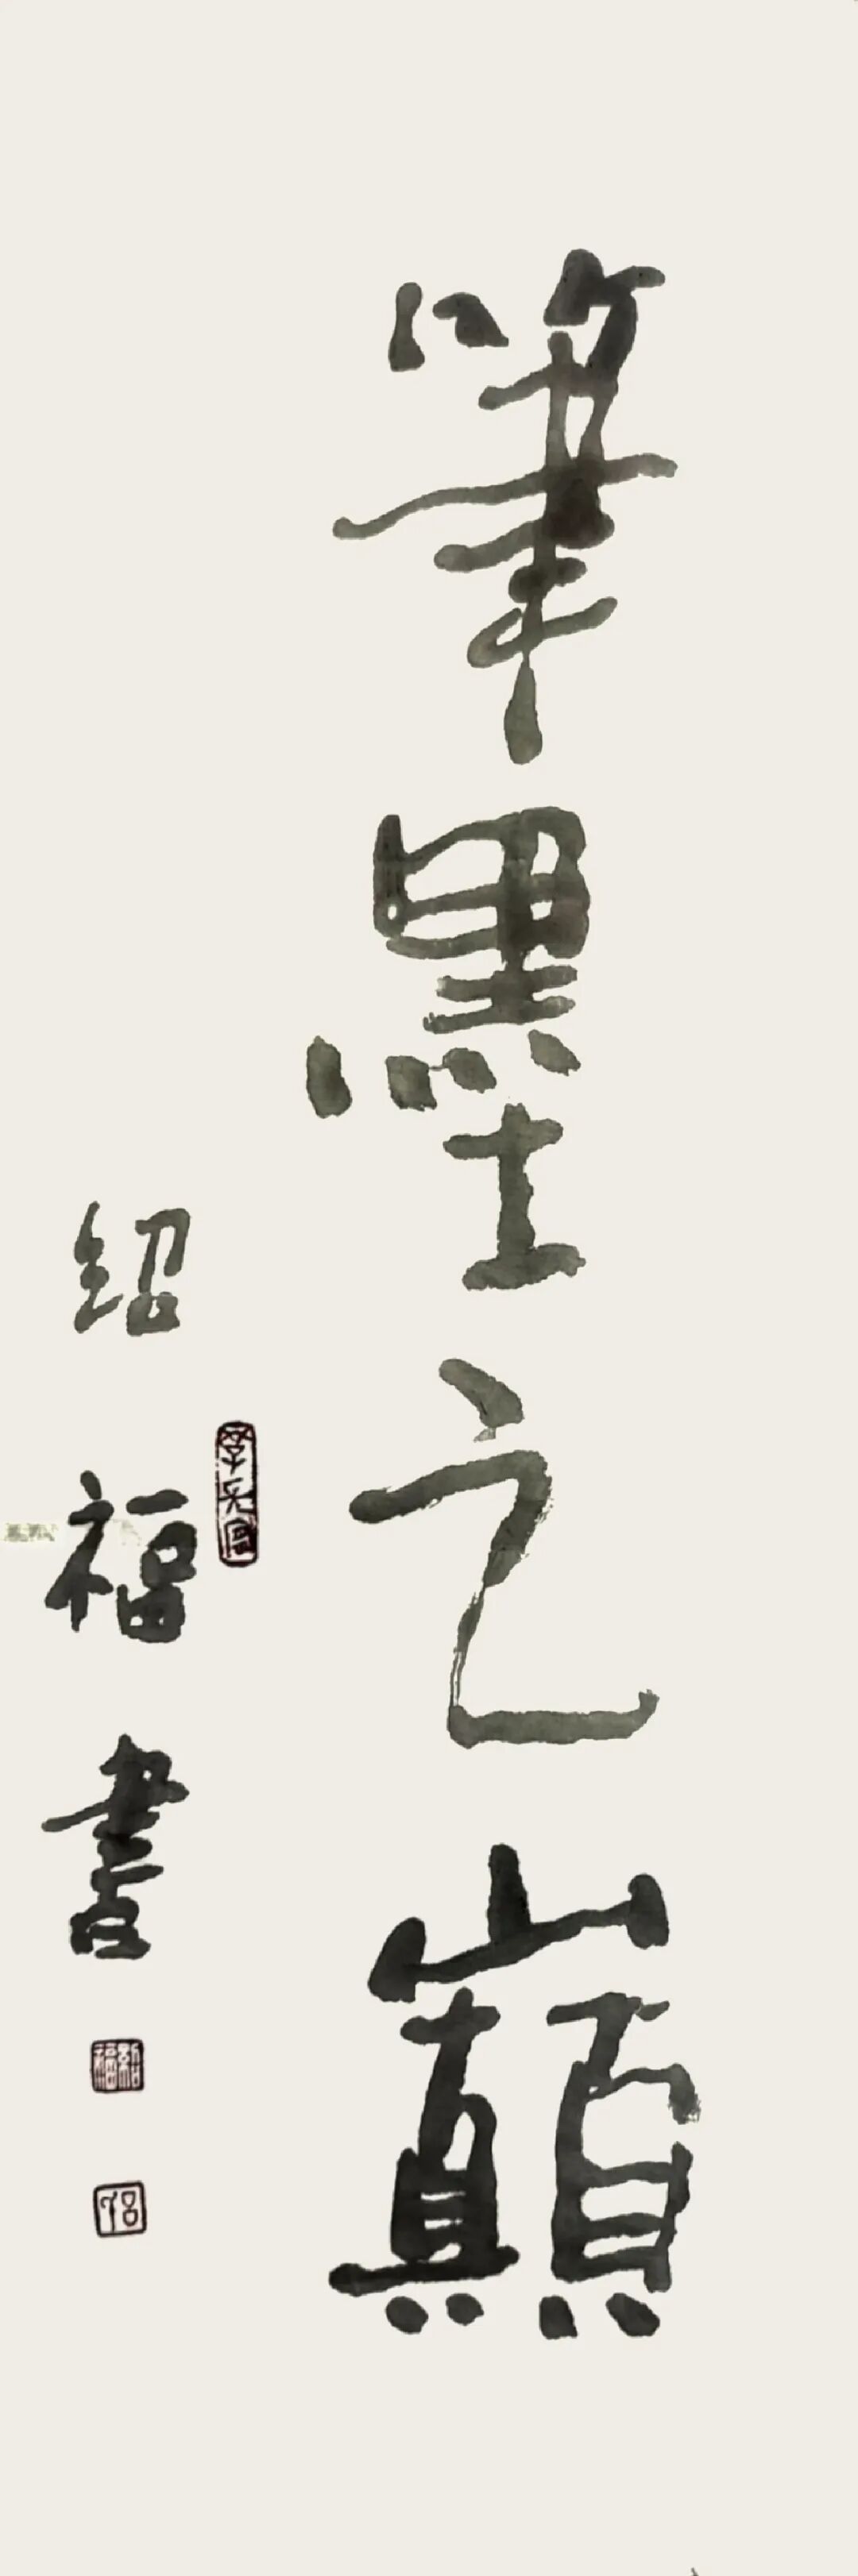 筆墨之巔
紹福書